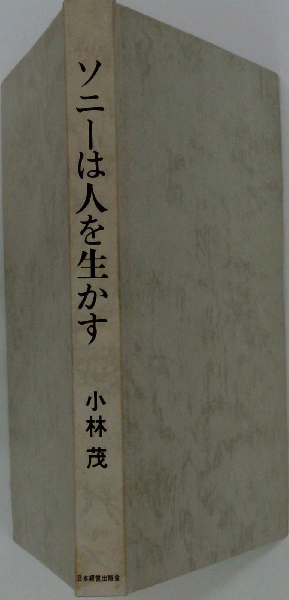 ソニーは人を生かす
小林 茂
日本経営出版会